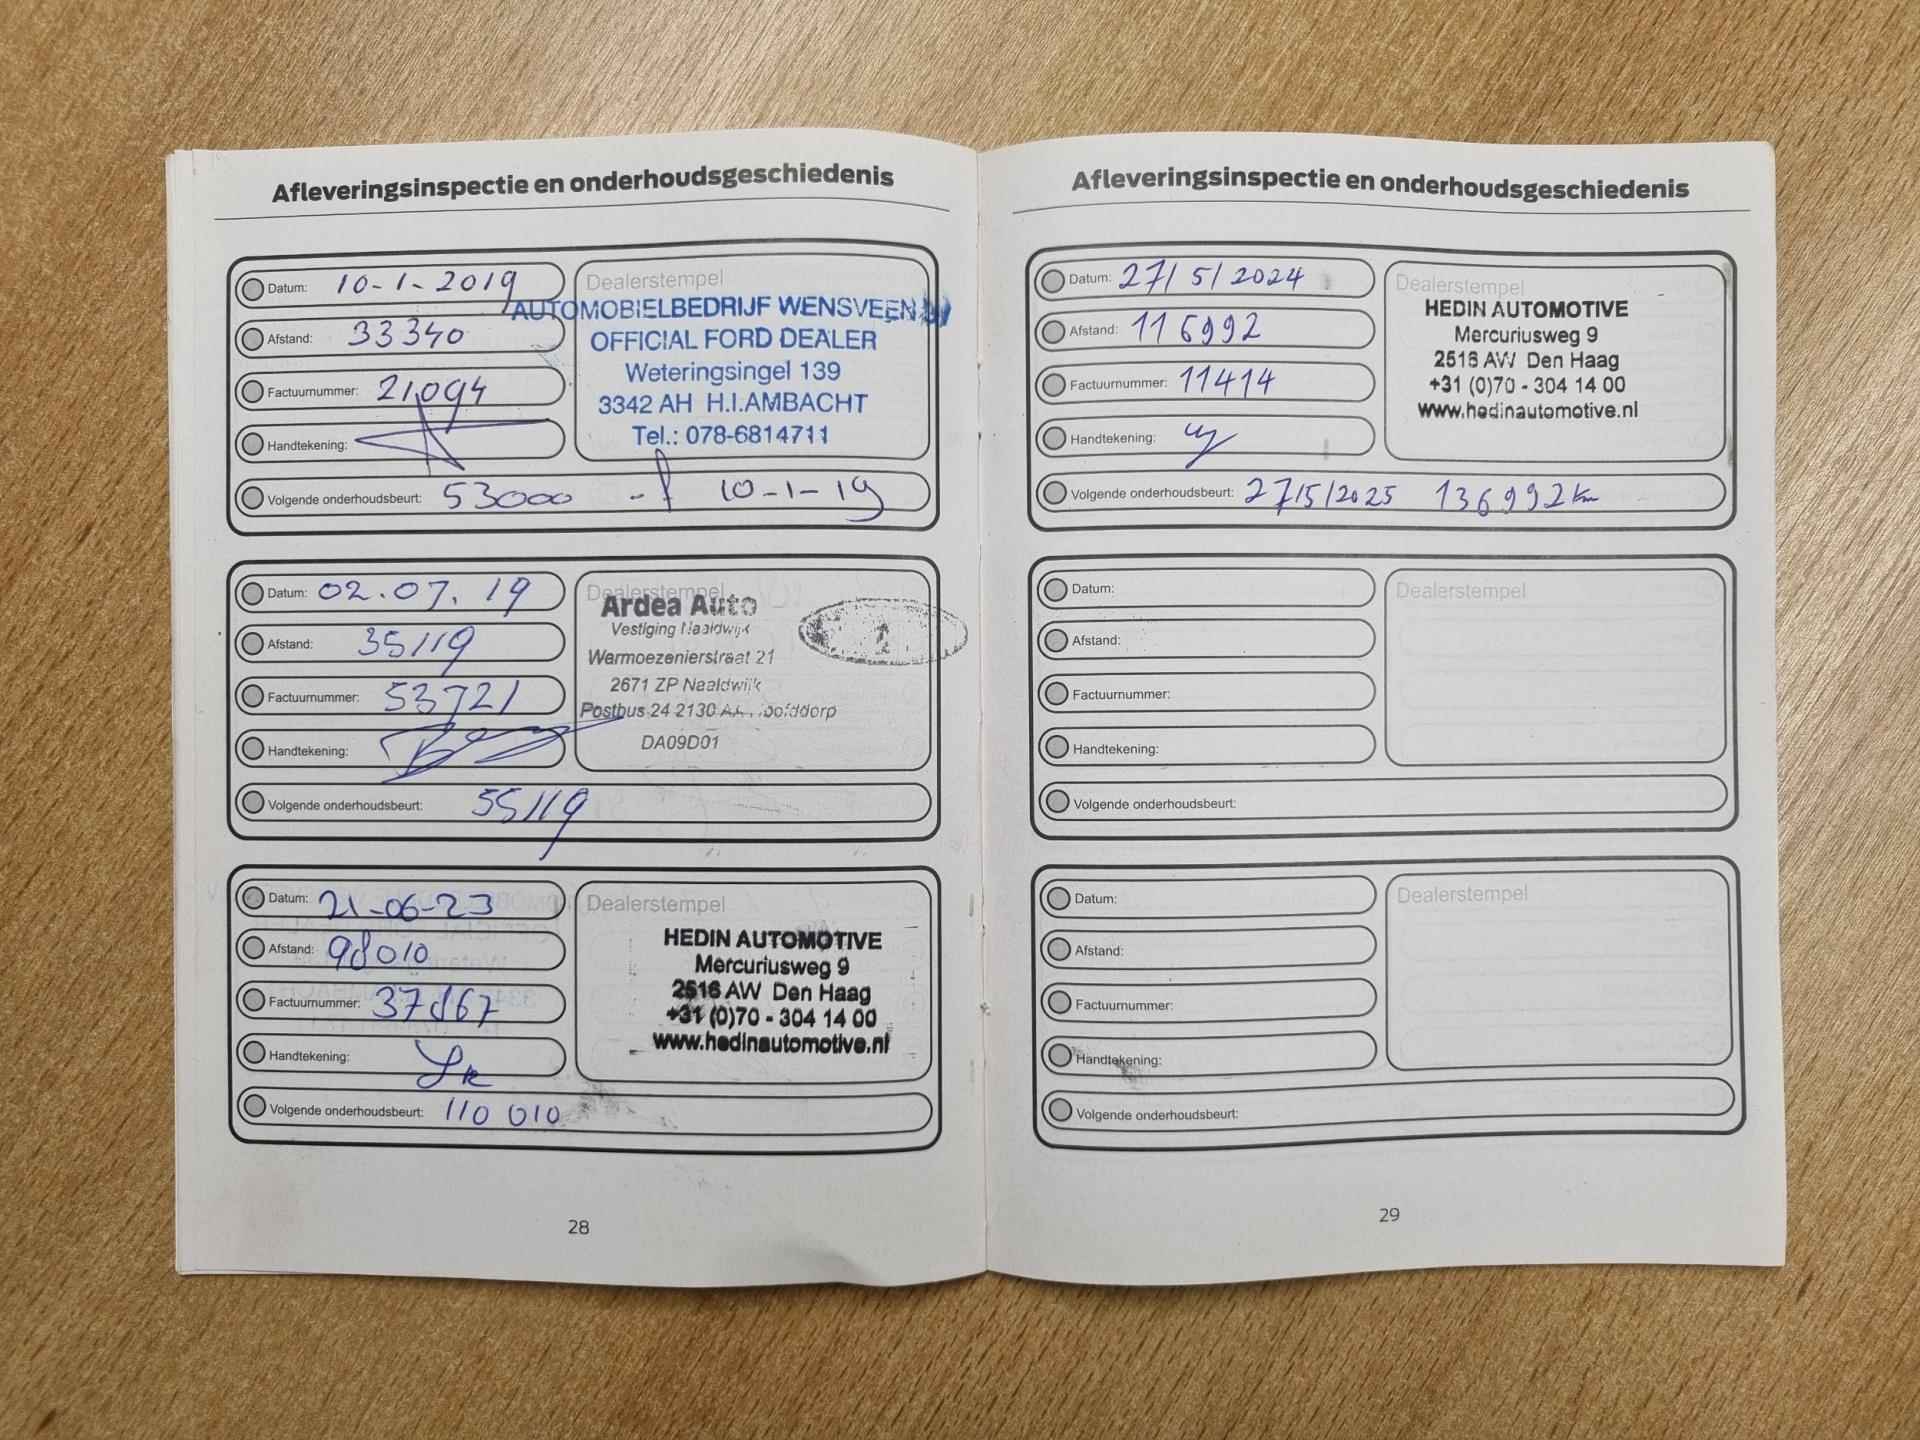 Afleveringsinspectie en onderhoudsgeschiedenis
Datum: 10-1-2019
Afstand: 33340
Factuurnummer: 21094
Handtekening:
Volgende onderhoudsbeurt: 53000 10-1-19
Dealerstempel
AUTOMOBIELBEDRIJF WENSVEEN BV
OFFICIAL FORD DEALER
Weteringsingel 139
3342 AH H.I.AMBACHT
Tel.: 078-6814711
Datum: 02.07.19
Afstand: 35119
Factuurnummer: 53721
Handtekening:
Volgende onderhoudsbeurt: 55119
Dealerstempel
Ardea Auto
Vestiging Naaldwijk
Warmoezenierstraat 21
2671 ZP Naaldwijk
Postbus 24 2130 Hoofddorp
DA09D01
Datum: 21-06-23
Afstand: 98010
Factuurnummer: 37867
Handtekening:
Volgende onderhoudsbeurt: 110 010
Dealerstempel
HEDIN AUTOMOTIVE
Mercuriusweg 9
2516 AW Den Haag
+31 (0)70 - 304 14 00
www.hedinautomotive.nl
28
Afleveringsinspectie en onderhoudsgeschiedenis
Datum: 27/5/2024
Afstand: 116992
Factuurnummer: 11414
Handtekening:
Volgende onderhoudsbeurt: 27/5/2025 136992 km
Dealerstempel
HEDIN AUTOMOTIVE
Mercuriusweg 9
2516 AW Den Haag
+31 (0)70 - 304 14 00
www.hedinautomotive.nl
Datum:
Afstand:
Factuurnummer:
Handtekening:
Volgende onderhoudsbeurt:
Dealerstempel
Datum:
Afstand:
Factuurnummer:
Handtekening:
Volgende onderhoudsbeurt:
Dealerstempel
29